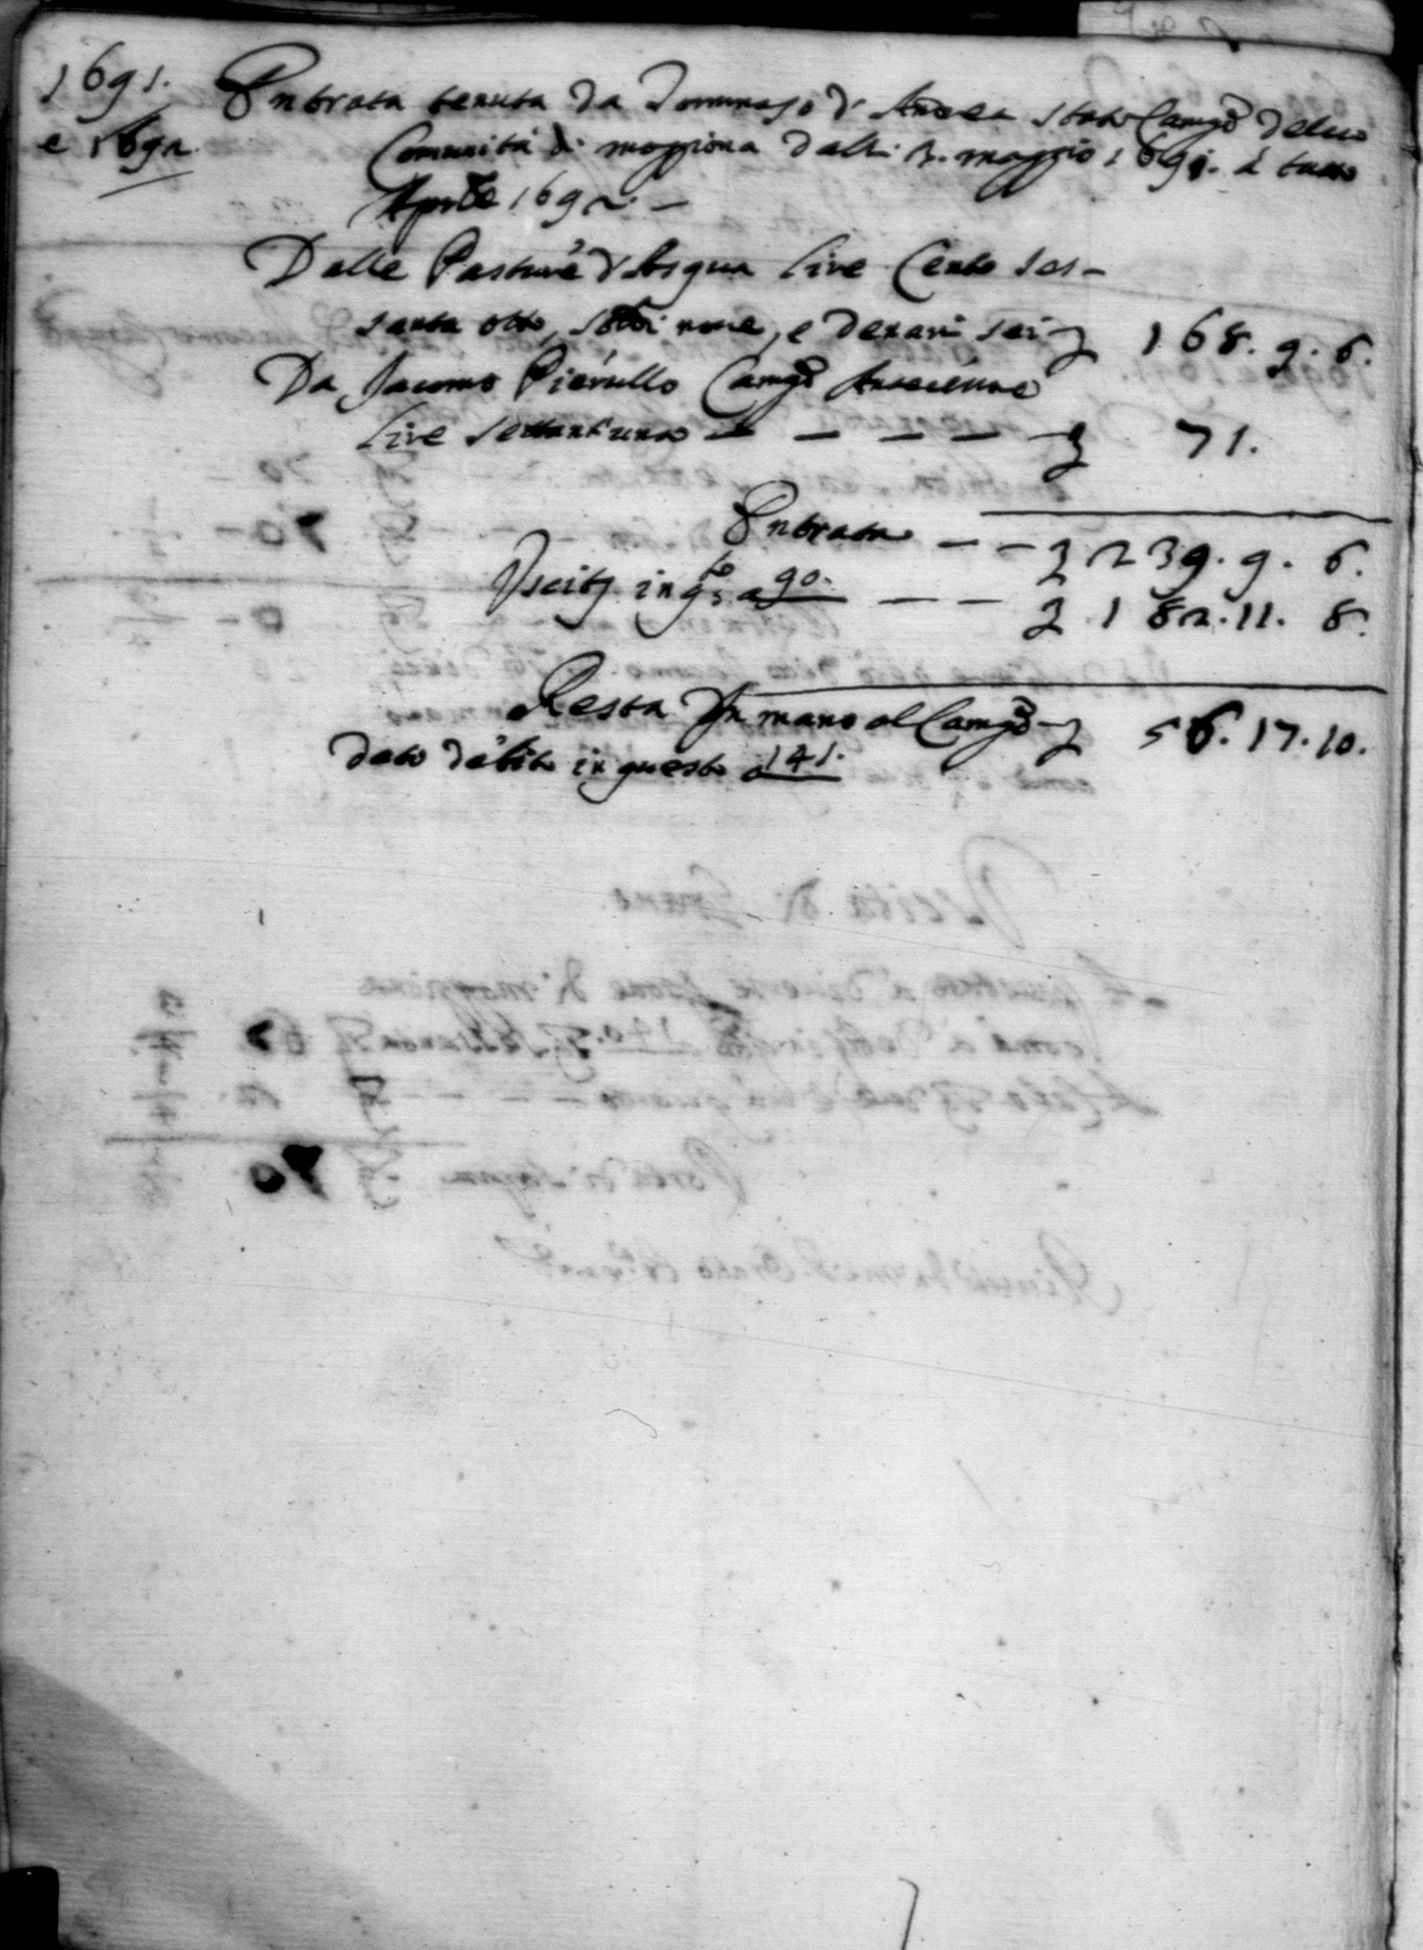 1691. Entrata tenuta da Tommaso d' Andrea stato Camg.o della
e 1692. Comunità di moggiona dalli 3. maggio 1691. à tutto
Aprile 1692. —
Dalle Pasture d'Acqua lire Cento ses-
santa otto, soldi nove, e denari sei £ 168. 9. 6.
Da Jacomo Pierullo Camg.o Antecessore
lire settant'uno — — — — £ 71.
Entrata — — £ 239. 9. 6.
Uscita in q.to a 90. — — £ 182. 11. 8.
Resta In mano al Camg.o £ 56. 17. 10.
dato debito in questo a 141.